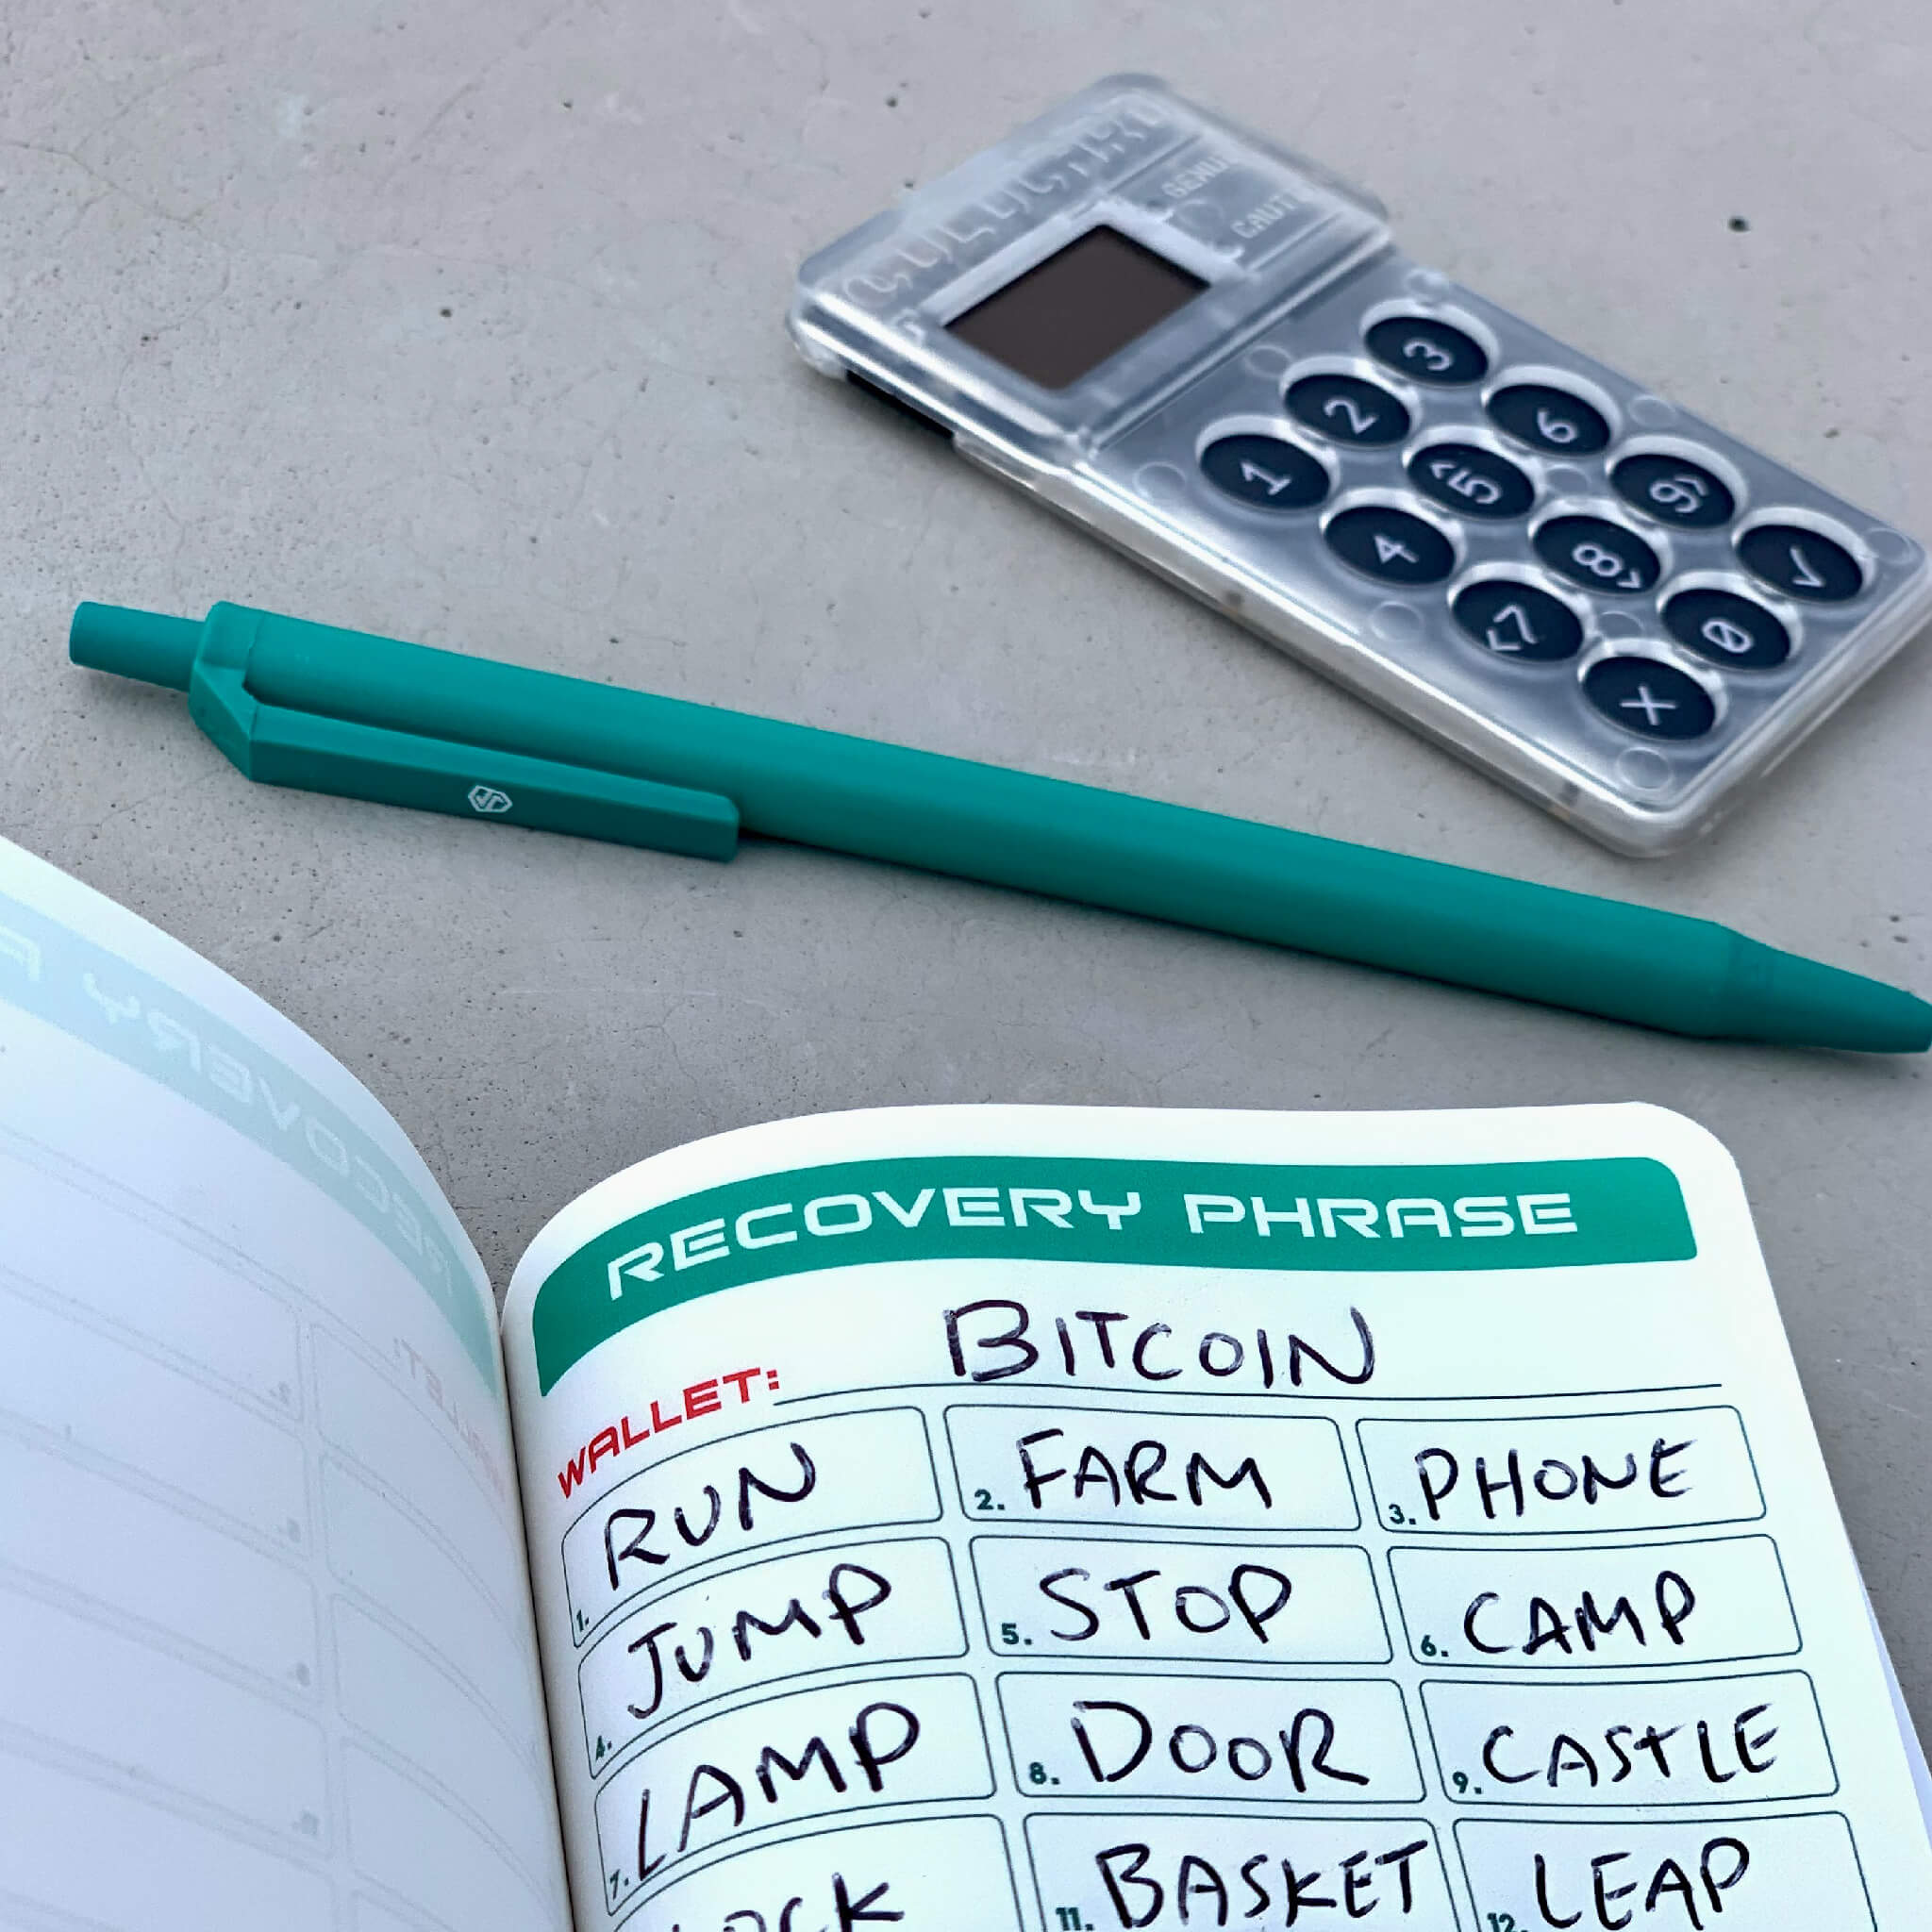 GENUI
CAUTI
3
2
6
1
5
9
4
8
7
0
RECOVERY
RECOVERY PHRASE
WALLET: BITCOIN
1. RUN 2. FARM 3. PHONE
4. JUMP 5. STOP 6. CAMP
7. LAMP 8. DOOR 9. CASTLE
11. BASKET 12. LEAP